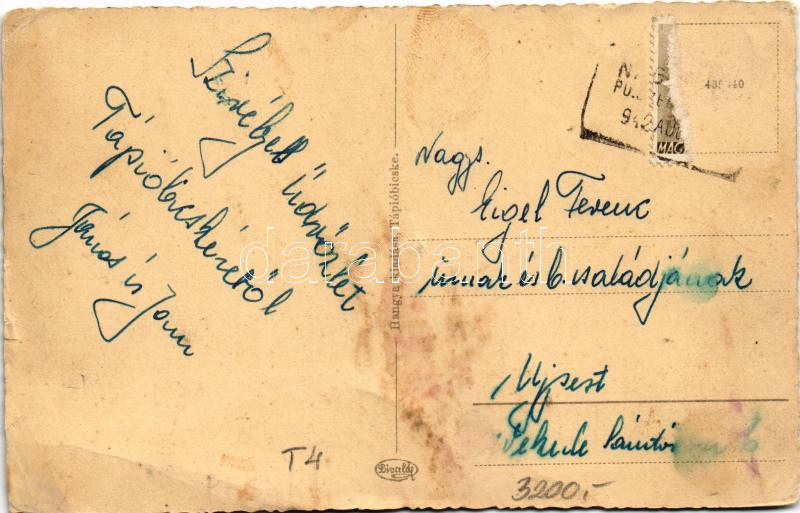 Szívélyes üdvözlet
Tápióbicskéről
János és
Hangya kiadása, Tápióbicske.
942 AU
MAG
Nagys.
Eigel Ferenc
úrnak és b. családjának
Ujpest
Sándor
Divald
T4
3200,-
darabanth